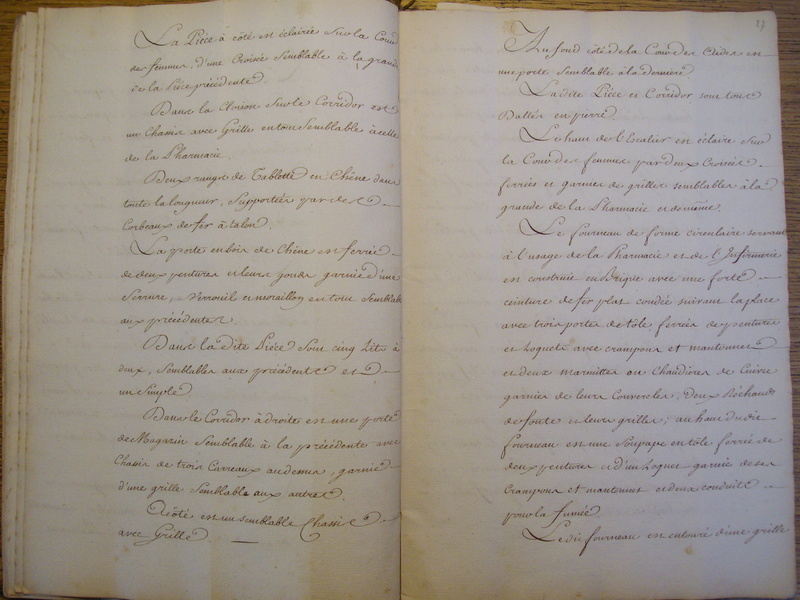 La Piéce à côté est éclairée sur la Cour
des femmes, d'une Croisée semblable à la grande
de la Piéce précédente.
Dans la Cloison sur le Corridor est
un Chassis avec Grille en tout semblable à celle
de la Pharmacie.
Deux rangs de Tablette en Chêne dans
toute la longueur, supportés par des
Corbeaux de fer à talon.
La porte en bois de Chêne est ferrée
de deux pentures et leurs gonds garnie d'une
Serrure, Verrouil et moraillon en tout semblable
aux précédentes.
Dans la dite Piéce sont cinq Lits à
deux, semblables aux précédents et
un simple.
Dans le Corridor à droite est une porte
de Magazin semblable à la précédente avec
Chassis de trois Carreaux au dessus, garnie
d'une grille semblable aux autres.
A côté est un semblable Chassis
avec Grille.
27
Au fond côté de la Cour des Aides est
une porte semblable à la dernière.
La dite Piéce et Corridor sont tout
Dallés en pierre.
Le haut de l'Escalier est éclairé sur
la Cour des femmes par deux Croisées
ferrées et garnies de grilles semblables à la
grande de la Pharmacie et de même.
Le fourneau de forme circulaire servant
à l'usage de la Pharmacie et de l'Infirmerie
est construit en Brique avec une forte
ceinture de fer plat coudée suivant la place
avec trois portes de tôle ferrées de pentures
et Loquets avec crampons et mantonnets
et deux marmittes ou Chaudières de Cuivre
garnies de leurs Couvercles. Deux Réchauds
de fonte et leurs grilles; au haut du dit
fourneau est une Soupape en tôle ferrée de
deux pentures et d'un Loquet garnie de ses
Crampons et mantonnet et deux conduits
pour la fumée.
Le dit fourneau est entouré d'une grille